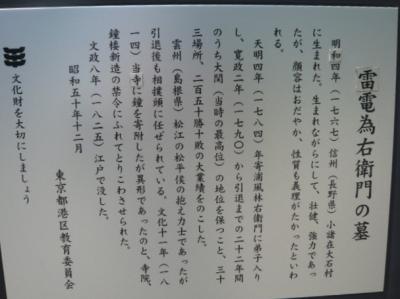 雷電為右衛門の墓
明和四年（一七六七）信州（長野県）小諸在大石村
に生まれた。生まれながらにして、壮健、強力であっ
たが、顔容はおだやか、性質も義理がたかったといわ
れる。
天明四年（一七八四）年寄浦風林右衛門に弟子入り
し、寛政二年（一七九〇）から引退までの二十二年間
のうち大関（当時の最高位）の地位を保つこと、三十
三場所、二百五十勝十敗の大業績をのこした。
雲州（島根県）松江の松平侯の抱え力士であったが
引退後も相撲頭に任ぜられている。文化十一年（一八
一四）当寺に鐘を寄附したが異形であったのと、寺院、
鐘楼新造の禁令にふれてとりこわさせられた。
文政八年（一八二五）江戸で没した。
昭和五十年十二月
東京都港区教育委員会
文化財を大切にしましょう